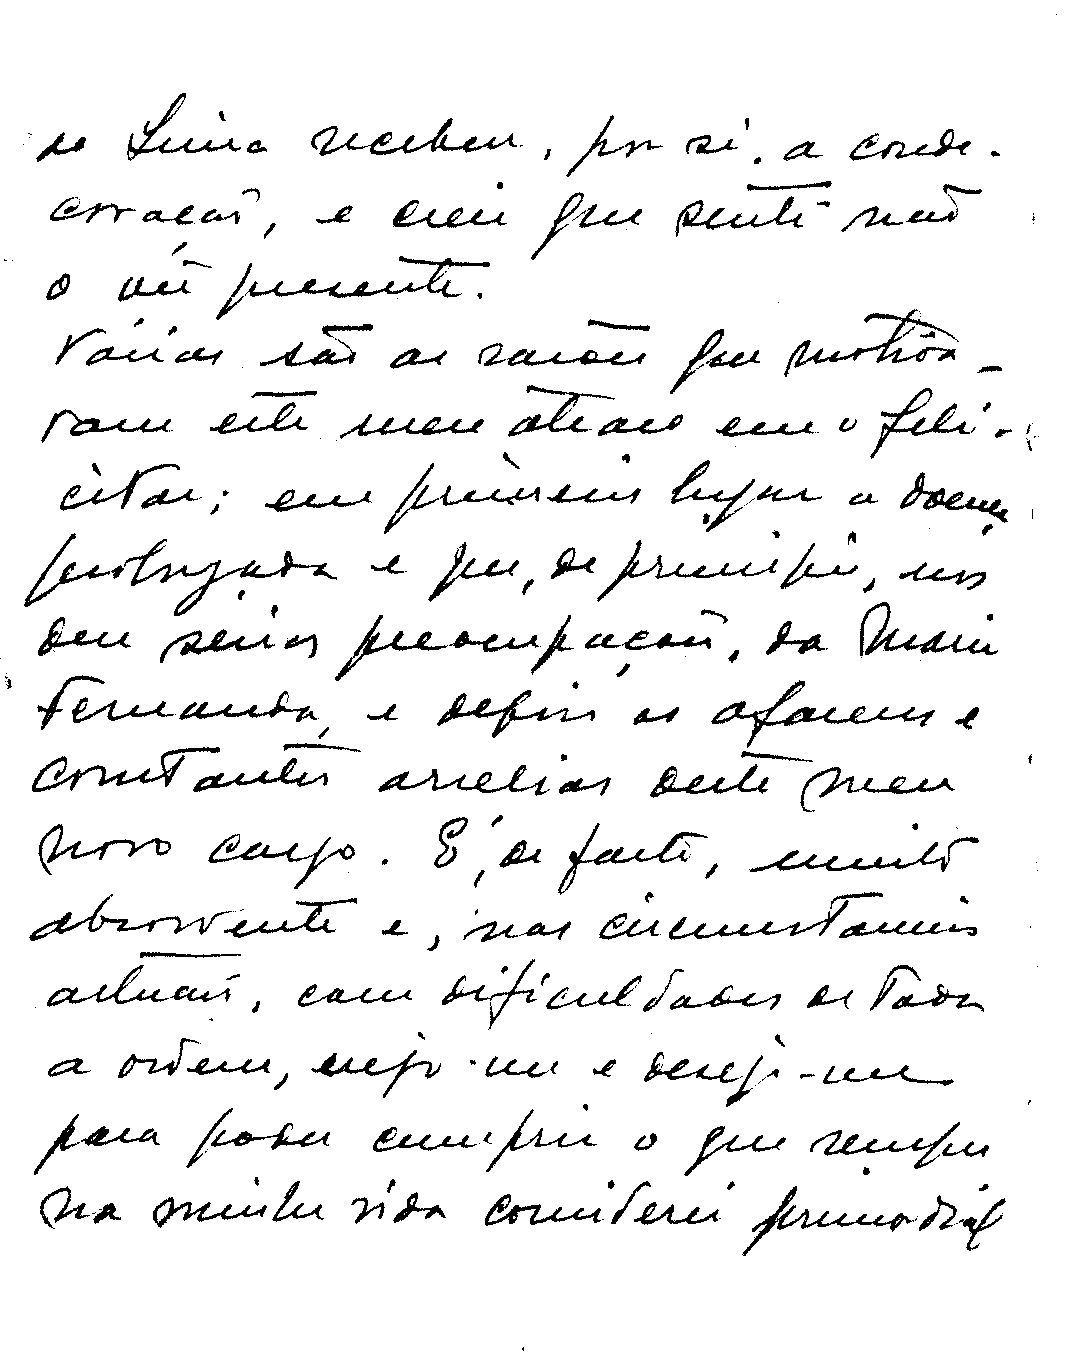 de Lima recebeu, por si, a conde-
coração, e creia que senti não
o vêr presente.
Várias são as razões que motiva-
ram este meu atraso em o feli-
citar; em primeiro lugar a doença
prolongada e que, de principio, nos
deu sérias preocupações, da Maria
Fernanda, e depois os afazeres e
constantes arrelias deste meu
novo cargo. É, de facto, muito
absorvente e, nas circunstancias
actuais, com dificuldades de toda
a ordem, vejo-me e desejo-me
para poder cumprir o que sempre
na minha vida considerei primordial